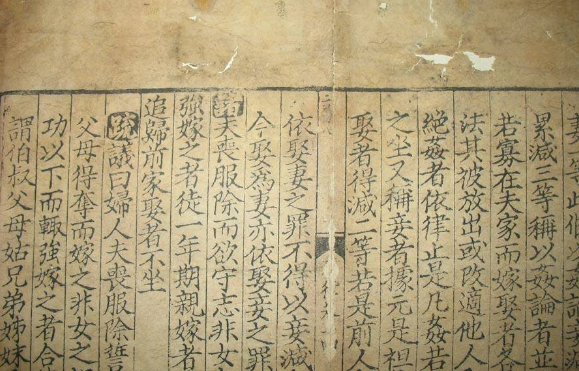 妻等
累減三等稱以姦論者並
若寡在夫家而嫁娶者各
法其被放出或改適他人
絶姦者依律止是凡姦若
之坐又稱妾者據元是袒
娶者得減二等若是前人
依娶妻之罪不得以妾減
今娶爲妻亦依娶妾之罪
諸夫喪服除而欲守志非女
強嫁之者徒一年期親嫁者
追歸前家娶者不坐
疏議曰婦人夫喪服除誓
父母得奪而嫁之非女之
功以下而輒強嫁之者合
謂伯叔父母姑兄弟姊妹